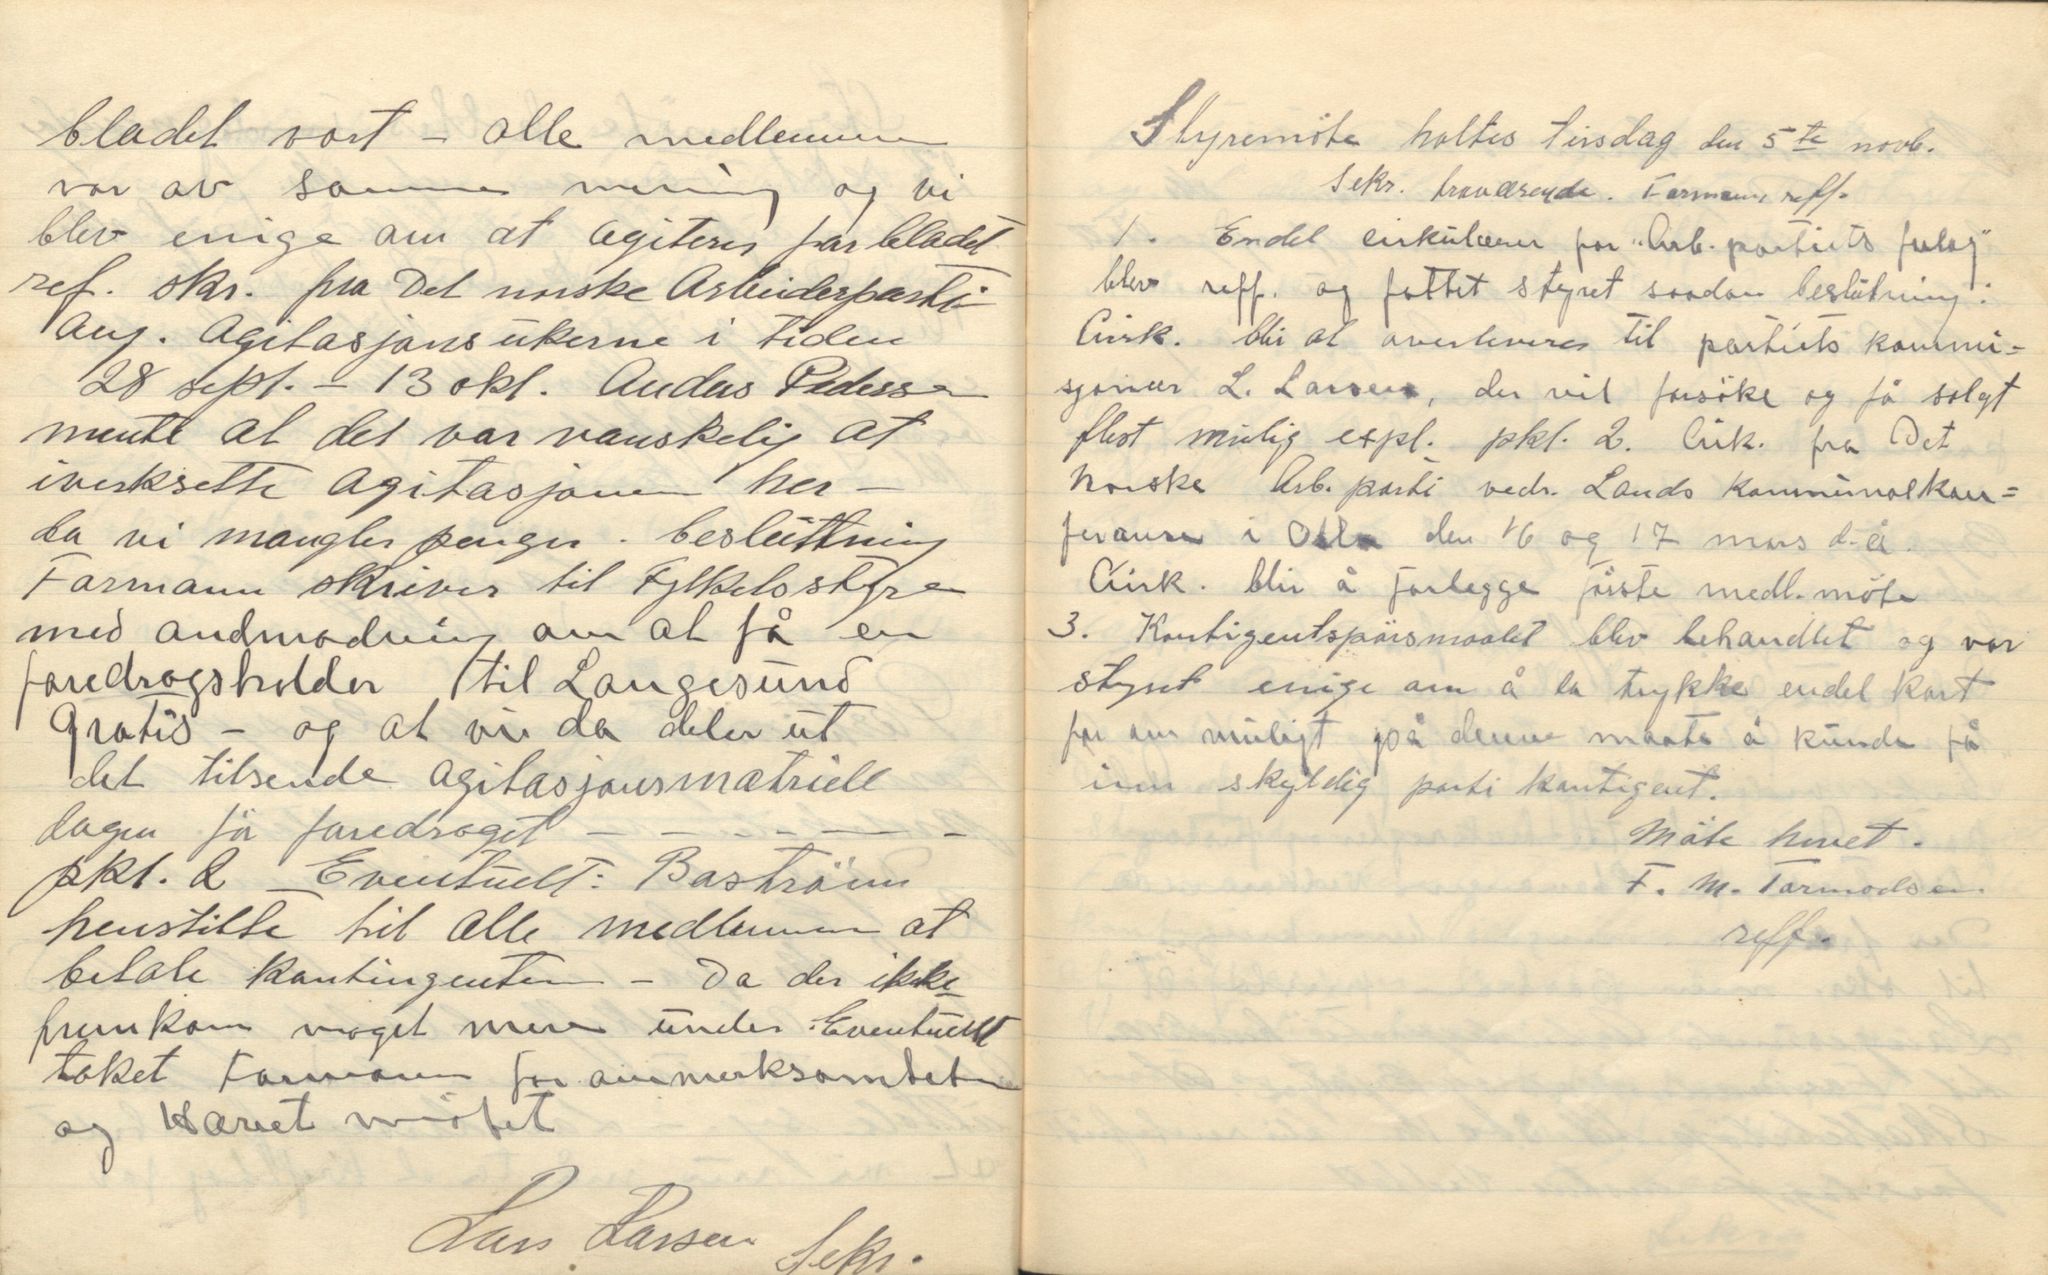 bladet vort – alle medlemmer
var av samme mening og vi
blev enige om at agiterer for bladet
ref. skr. fra Det norske Arbeiderparti
ang. agitasjonsukerne i tiden
28 sept. – 13 okt. Anders Pedersen
mente at det var vanskelig at
iverksette agitasjonen her –
da vi mangler penger. beslutning
Formann skriver til Fylkelsstyre
med andmodning om at få en
foredragsholder til Langesund
gratis – og at vi da deler ut
det tilsende agitasjonsmatriell
dagen før foredraget – – – – – –
pkt. 2 Eventuelt: Bastrøm
henstilte til alle medlemmer at
betale kontingenten – Da der ikke
fremkom noget mere under Eventuelt
taket Formann for ommerksomheten
og Hævet møtet
Lars Larsen Sekr.
Styremöte holtes tirsdag den 5te novb.
Sekr. fraværende. Formann reff.
1. Endel cirkulærer for "Arb. partiets forlag"
blev reff. og fattet styret saadan beslutning:
Cirk. blir at overleveres til partiets kommi-
sjonær L. Larsen, der vil forsöke og få solgt
flest mulig expl. pkt. 2. Cirk. fra Det
Norske Arb. parti vedr. Lands kommunalkon=
feranse i Oslo den 16 og 17 mars d.å.
Cirk. blir å forlegge förste medl. möte
3. Kontigentspörsmaalet blev behandlet og var
styret enige om å la trykke endel kort
for om muligt på denne maate å kunde få
inn skyldig parti kontigent.
Möte hevet.
F. M. Tormodsen
reff.